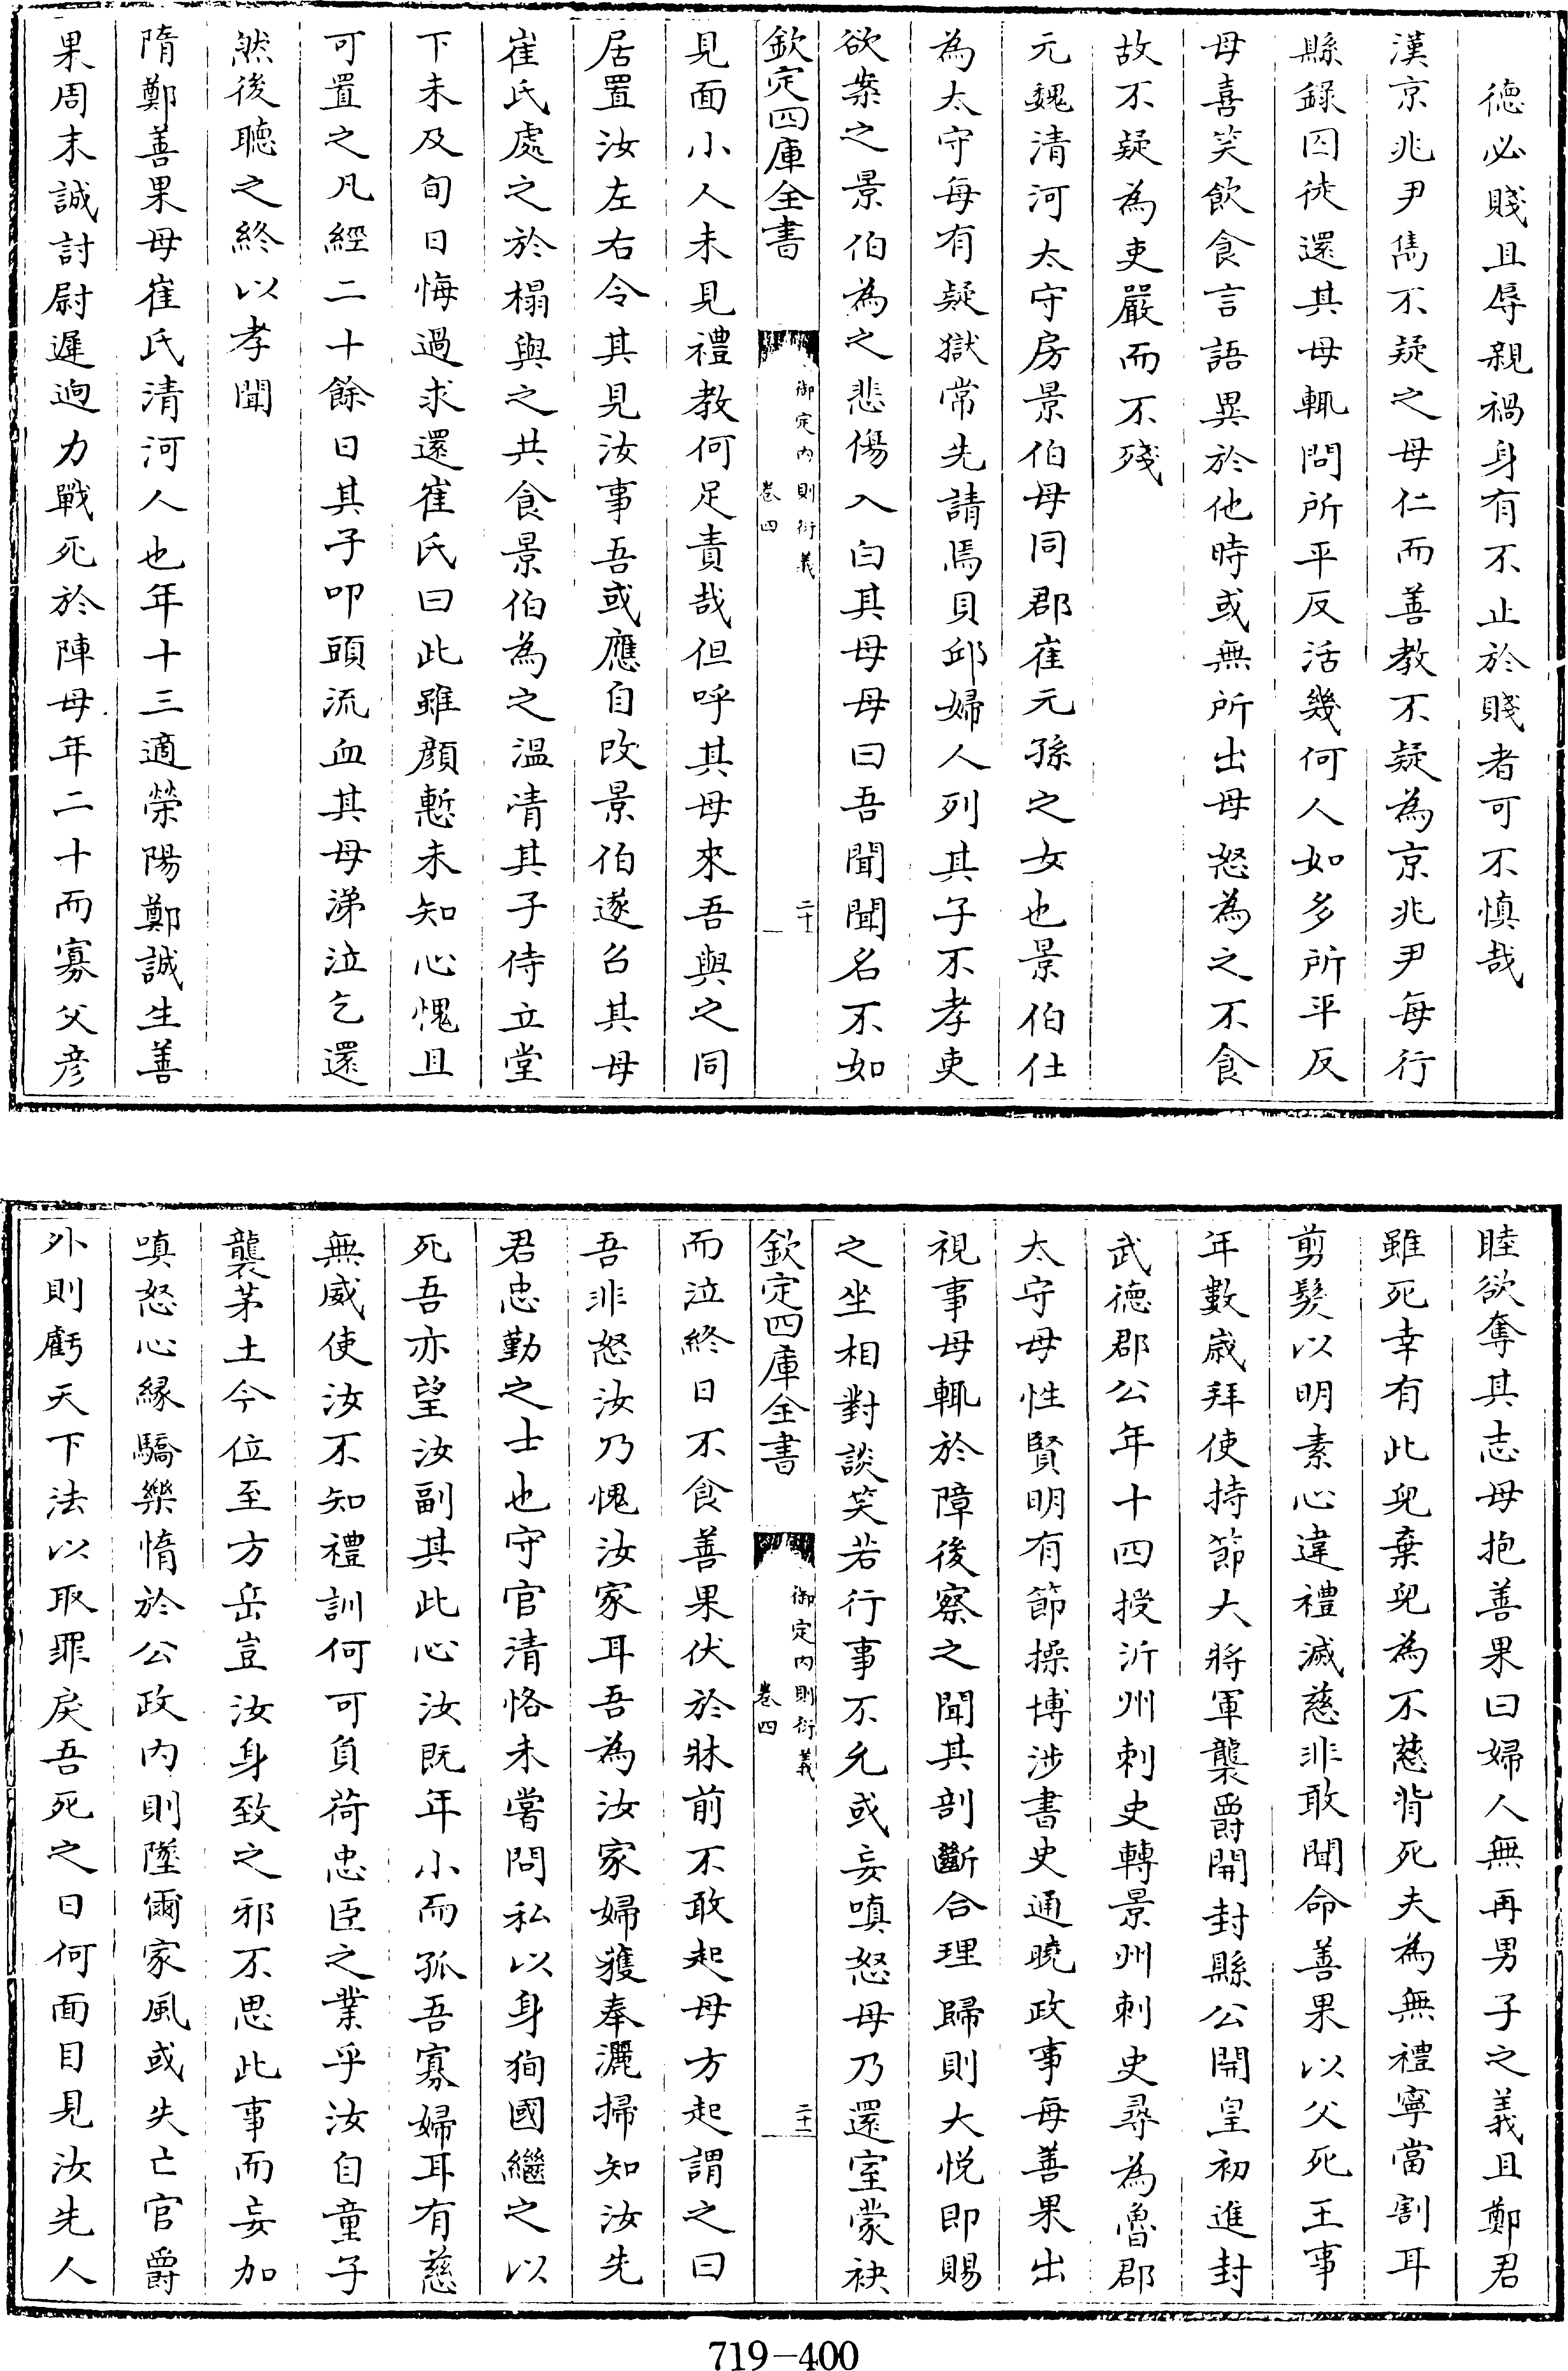 德必賤且辱親禍身有不止於賤者可不慎哉
漢京兆尹雋不疑之母仁而善教不疑為京兆尹每行
縣錄囚徒還其母輒問所平反活幾何人如多所平反
母喜笑飲食言語異於他時或無所出母怒為之不食
故不疑為吏嚴而不殘
元魏清河太守房景伯母同郡崔元孫之女也景伯仕
為太守每有疑獄常先請焉貝邱婦人列其子不孝吏
欲案之景伯為之悲傷入白其母母曰吾聞聞名不如
欽定四庫全書
御定內則衍義
卷四
二十
見面小人未見禮教何足責哉但呼其母來吾與之同
居置汝左右令其見汝事吾或應自改景伯遂召其母
崔氏處之於榻與之共食景伯為之溫凊其子侍立堂
下未及旬日悔過求還崔氏曰此雖顏慙未知心愧且
可置之凡經二十餘日其子叩頭流血其母涕泣乞還
然後聽之終以孝聞
隋鄭善果母崔氏清河人也年十三適滎陽鄭誠生善
果周末誠討尉遲迥力戰死於陣母年二十而寡父彥
睦欲奪其志母抱善果曰婦人無再男子之義且鄭君
雖死幸有此兒棄兒為不慈背死夫為無禮寧當割耳
剪髮以明素心違禮滅慈非敢聞命善果以父死王事
年數歲拜使持節大將軍襲爵開封縣公開皇初進封
武德郡公年十四授沂州刺史轉景州刺史尋為魯郡
太守母性賢明有節操博涉書史通曉政事每善果出
視事母輒於障後察之聞其剖斷合理歸則大悅即賜
之坐相對談笑若行事不允或妄嗔怒母乃還室蒙袂
欽定四庫全書
御定內則衍義
卷四
二十一
而泣終日不食善果伏於牀前不敢起母方起謂之曰
吾非怒汝乃愧汝家耳吾為汝家婦獲奉灑掃知汝先
君忠勤之士也守官清恪未嘗問私以身狥國繼之以
死吾亦望汝副其此心汝既年小而孤吾寡婦耳有慈
無威使汝不知禮訓何可負荷忠臣之業乎汝自童子
襲茅土今位至方岳豈汝身致之邪不思此事而妄加
嗔怒心緣驕樂惰於公政內則墜爾家風或失亡官爵
外則虧天下法以取罪戾吾死之日何面目見汝先人
719-400